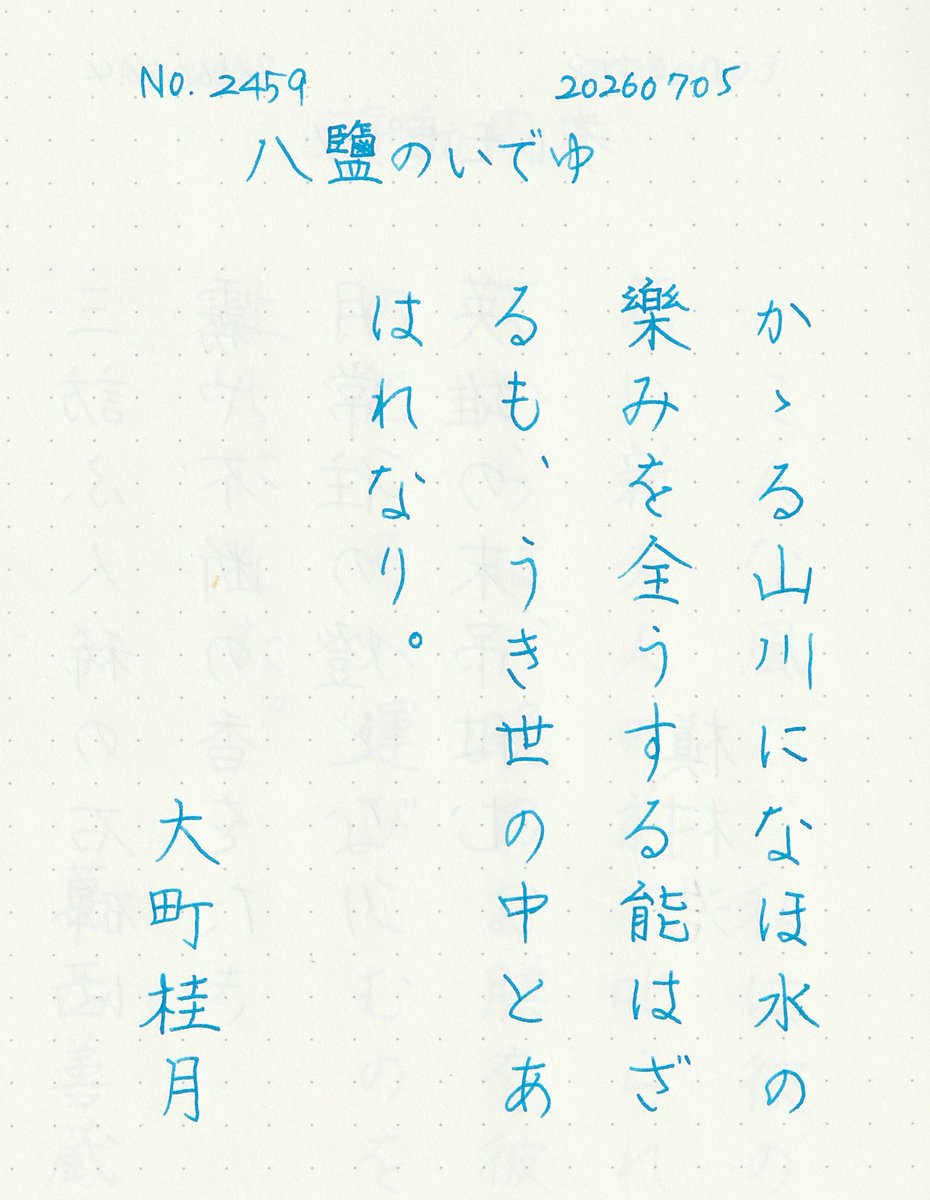 No. 2459 20260705
八鹽のいでゆ
かゝる山川になほ水の
樂みを全うする能はざ
るも、うき世の中とあ
はれなり。
大町桂月